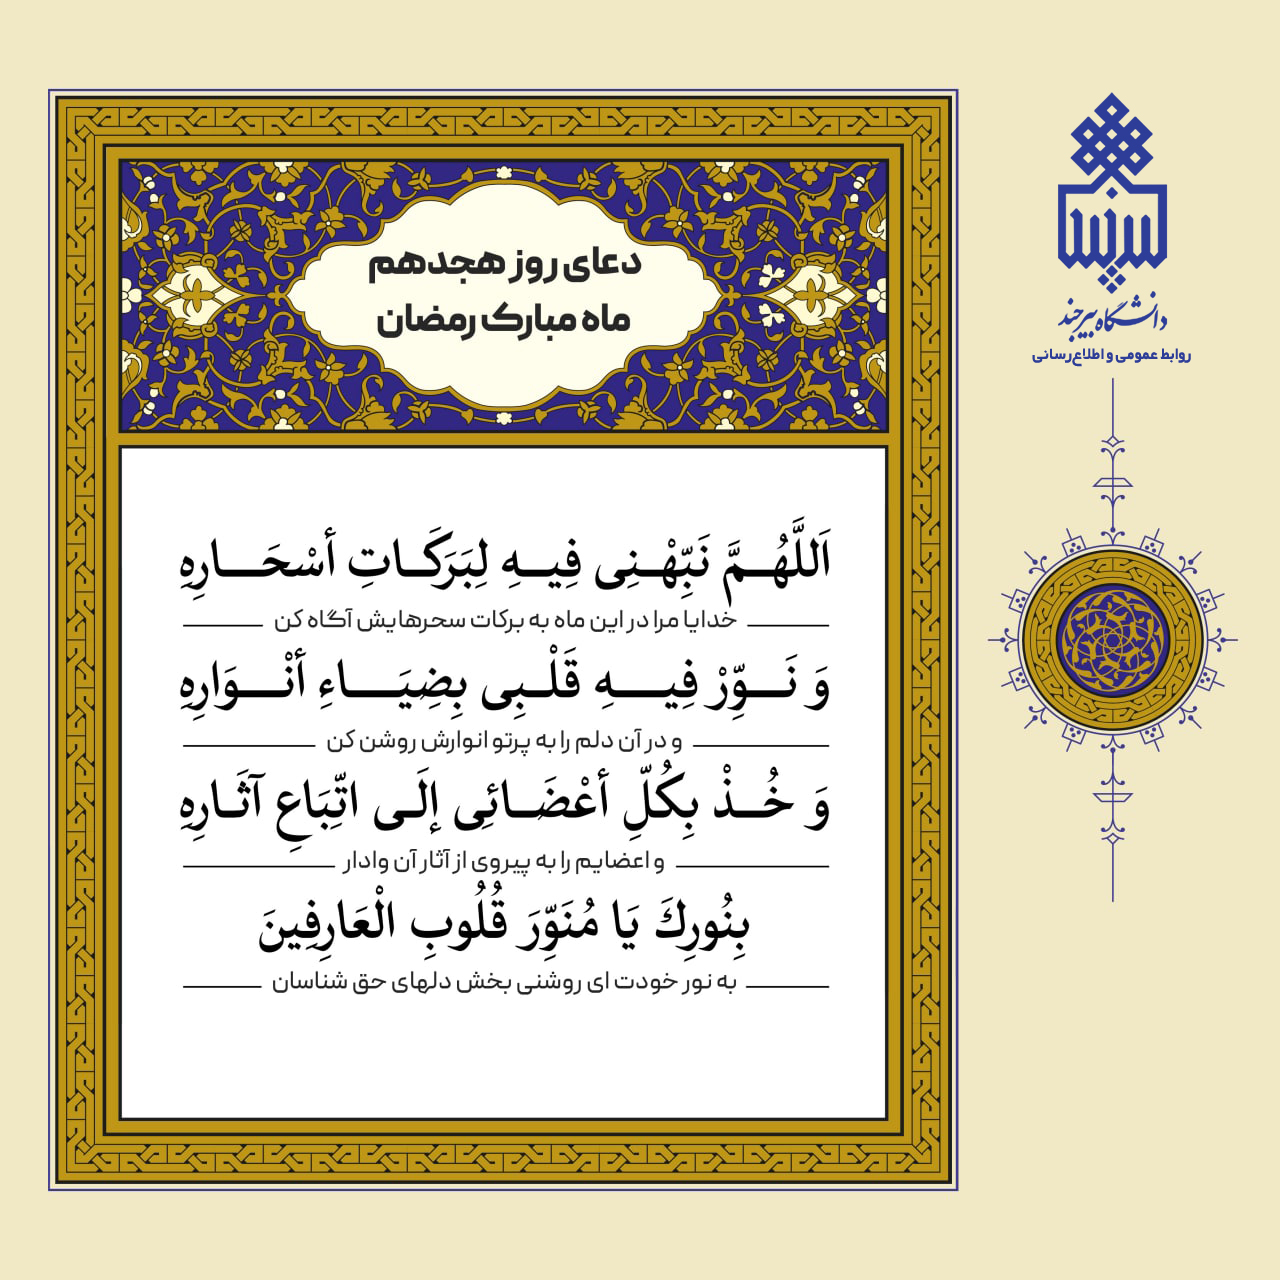 دعای روز هجدهم
ماه مبارک رمضان
اَللَّهُمَّ نَبِّهْنِی فِیهِ لِبَرَکَاتِ أسْحَارِهِ
خدایا مرا در این ماه به برکات سحرهایش آگاه کن
وَ نَوِّرْ فِیهِ قَلْبِی بِضِیَاءِ أنْوَارِهِ
و در آن دلم را به پرتو انوارش روشن کن
وَ خُذْ بِکُلِّ أعْضَائِی إلَی اتِّبَاعِ آثَارِهِ
و اعضایم را به پیروی از آثار آن وادار
بِنُورِكَ یَا مُنَوِّرَ قُلُوبِ الْعَارِفِینَ
به نور خودت ای روشنی بخش دلهای حق شناسان
دانشگاه بیرجند
روابط عمومی و اطلاع‌رسانی